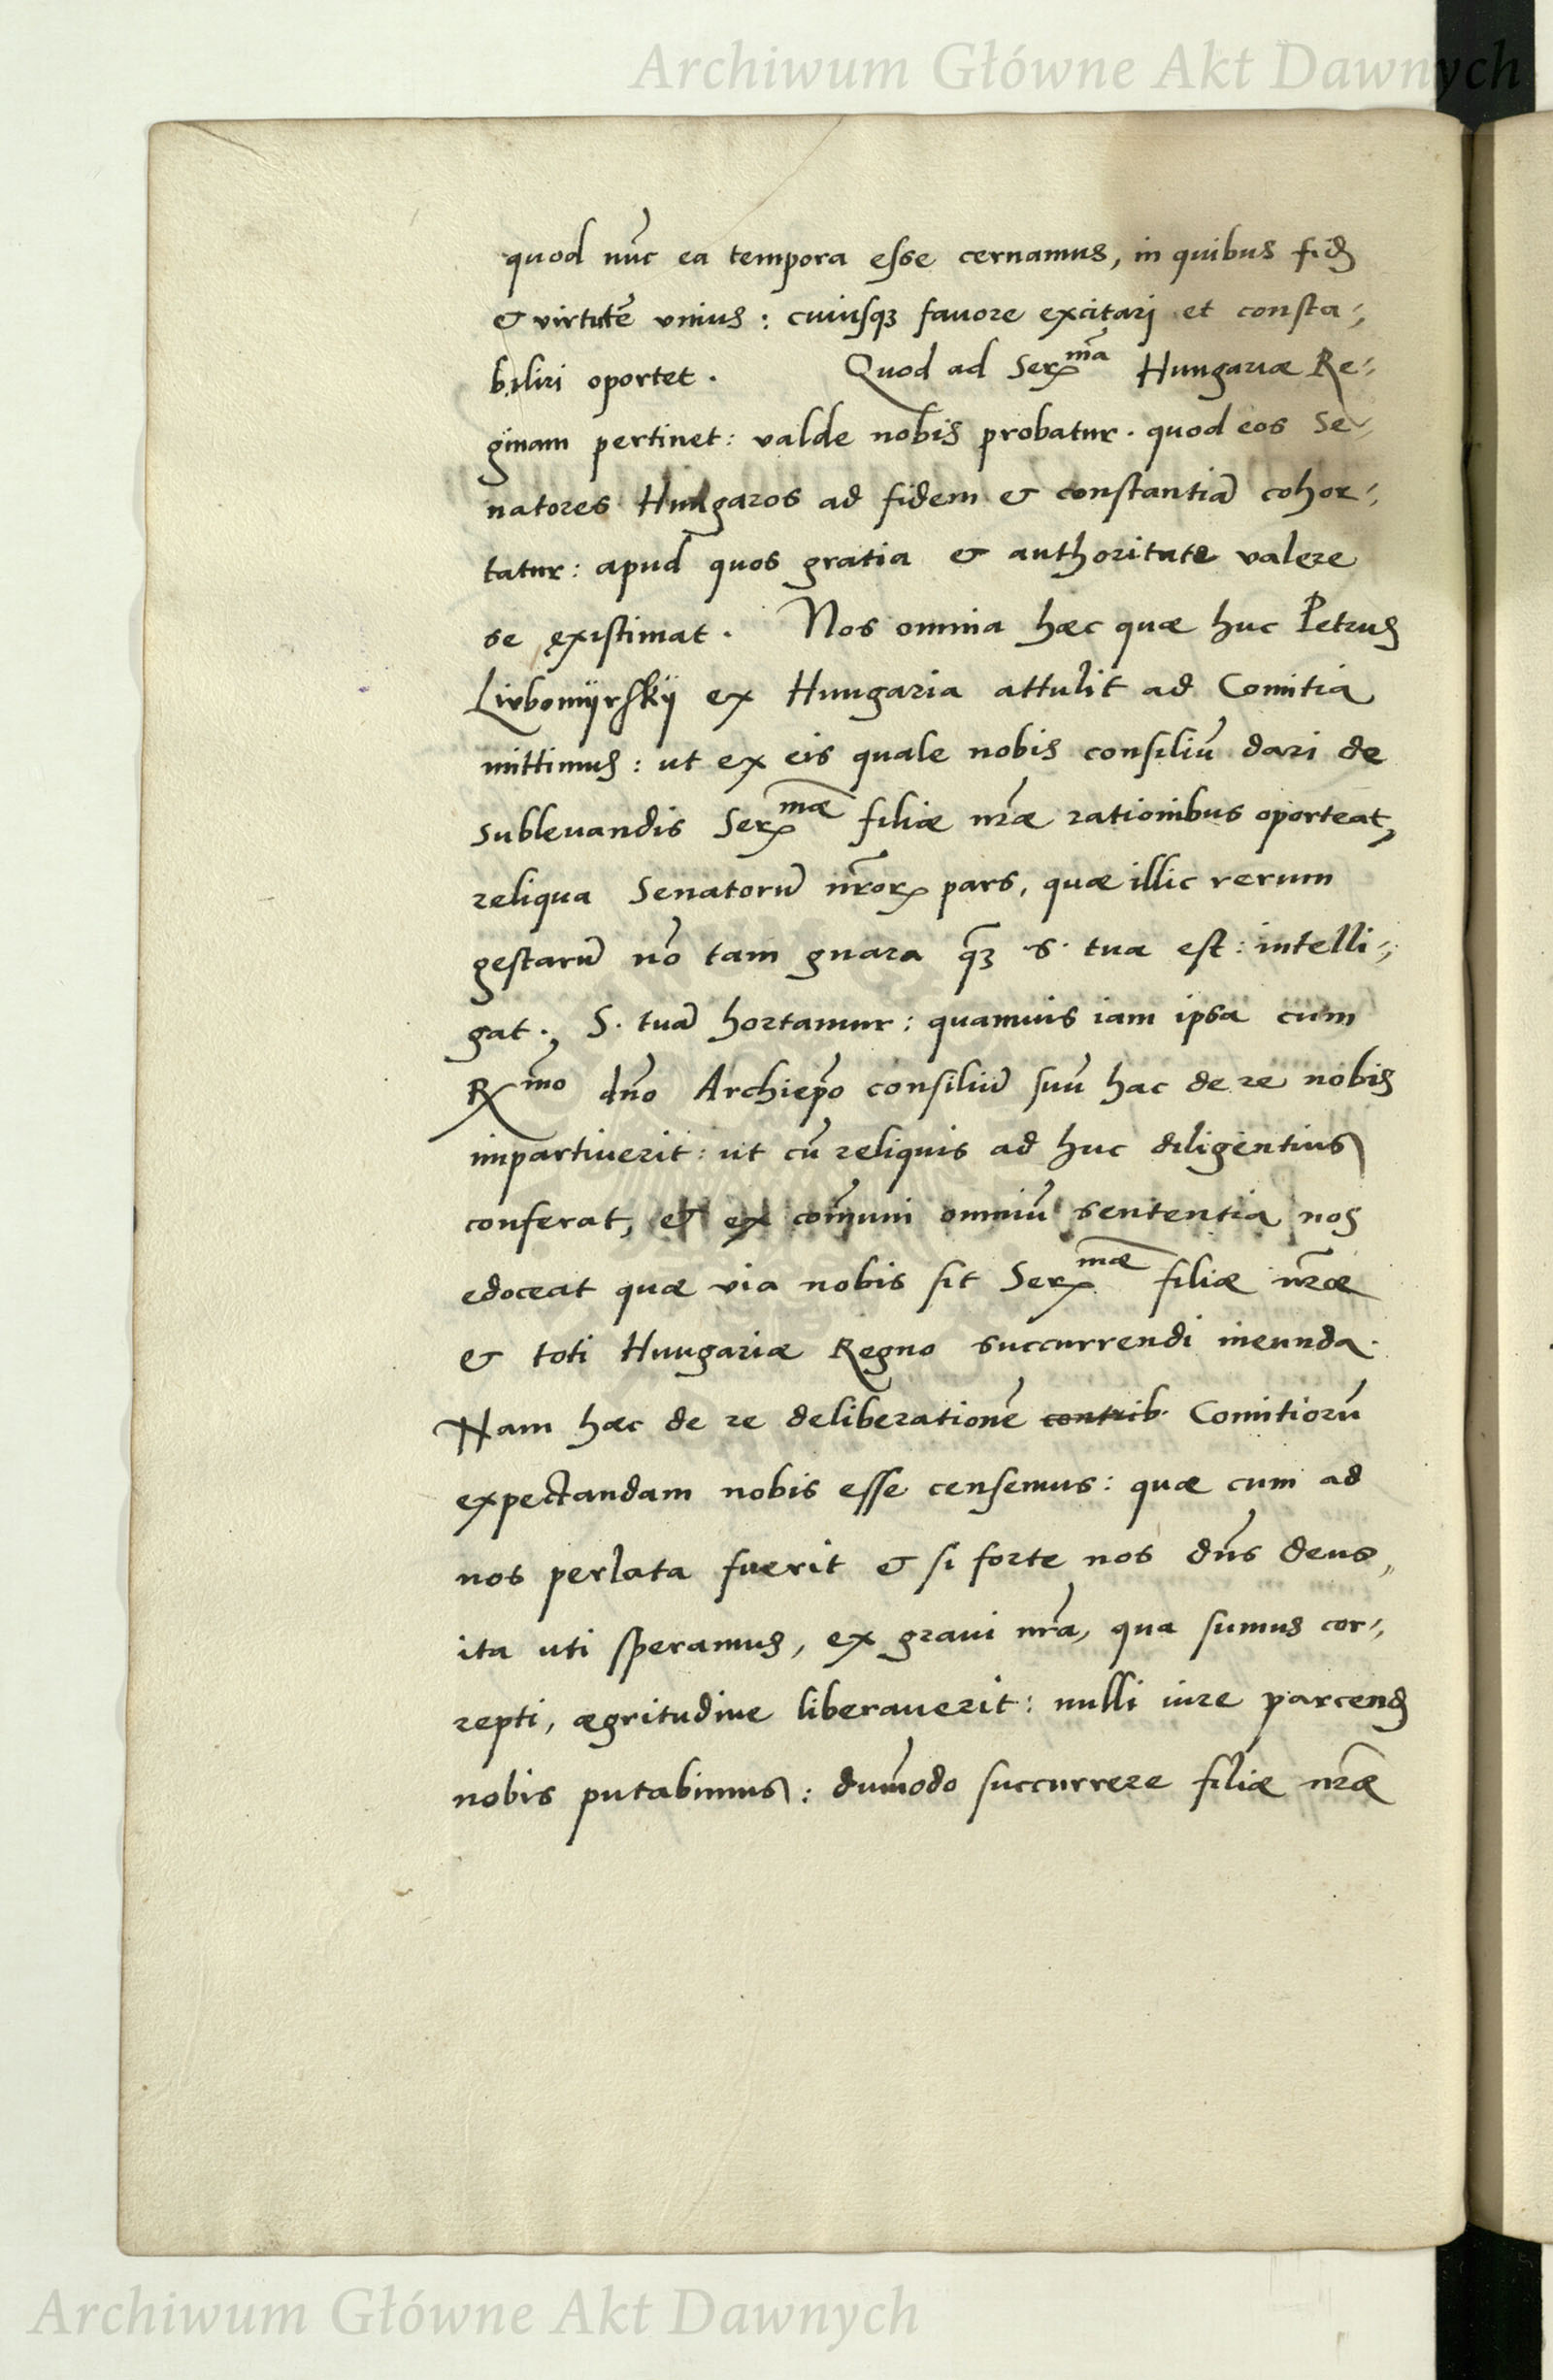 Archiwum Główne Akt Dawnych
quod nūc ea tempora esse cernamus, in quibus fidē
& virtutē vnius : cuiusqȝ fauore excitari et consta⸗
biliri oportet . Quod ad Serᵐᵃ Hungariæ Re⸗
ginam pertinet : valde nobis probatur . quod eos Se⸗
natores Hungaros ad fidem & constantiā cohor⸗
tatur : apud quos gratia & authoritate valere
se existimat . Nos omnia hæc quæ huc Petrus
Liubomÿrskÿ ex Hungaria attulit ad Comitia
mittimus : ut ex eis quale nobis consiliū dari de
subleuandis Serᵐᵃᵉ filiæ nr̄æ rationibus oporteat,
reliqua Senatorū nr̄orꝝ pars, quæ illic rerum
gestarū nō tam gnara qȝ̄ S. tua est : intelli⸗
gat ., S. tuā hortamur : quamuis iam ipsa cum
Rᵐᵒ dn̄o Archiep̄o consiliū suū hac de re nobis
impartiuerit : ut cū reliquis ad huc diligentius
conferat, & ex com̄uni omniū sententia nos
edoceat quæ via nobis sit Serᵐᵃᵉ filiæ nr̄æ
& toti Hungariæ Regno succurrendi ineunda .
Nam hac de re deliberationē contrib. Comitiorū
expectandam nobis esse censemus : quæ cum ad
nos perlata fuerit & si forte nos dn̄s deus,
ita uti speramus, ex graui nr̄a, qua sumus cor⸗
repti, ægritudine liberauerit : nulli iure parcendū
nobis putabimus : dum̄odo succurrere filiæ nr̄æ
Archiwum Główne Akt Dawnych